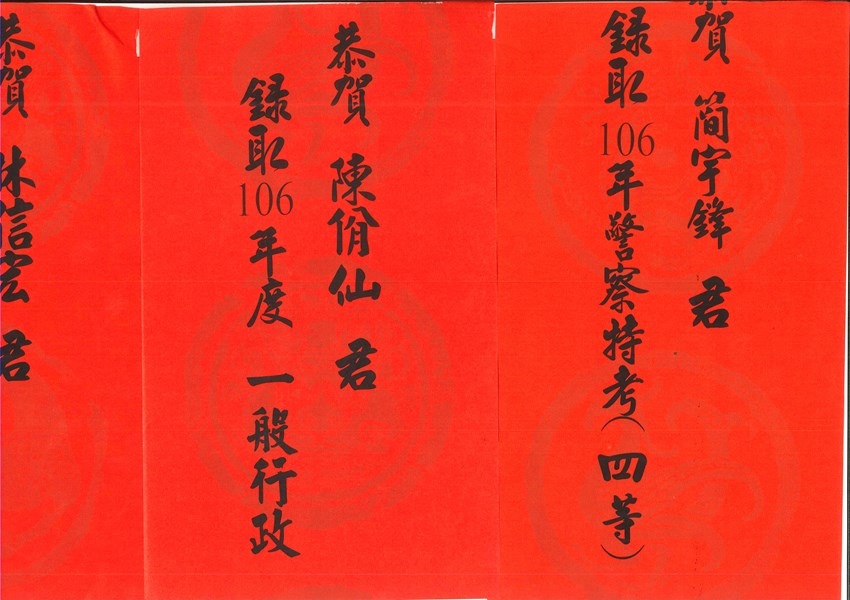 恭賀 簡宇鋒 君
錄取 106 年警察特考(四等)
恭賀 陳佾仙 君
錄取 106 年度 一般行政
恭賀 林信宏 君